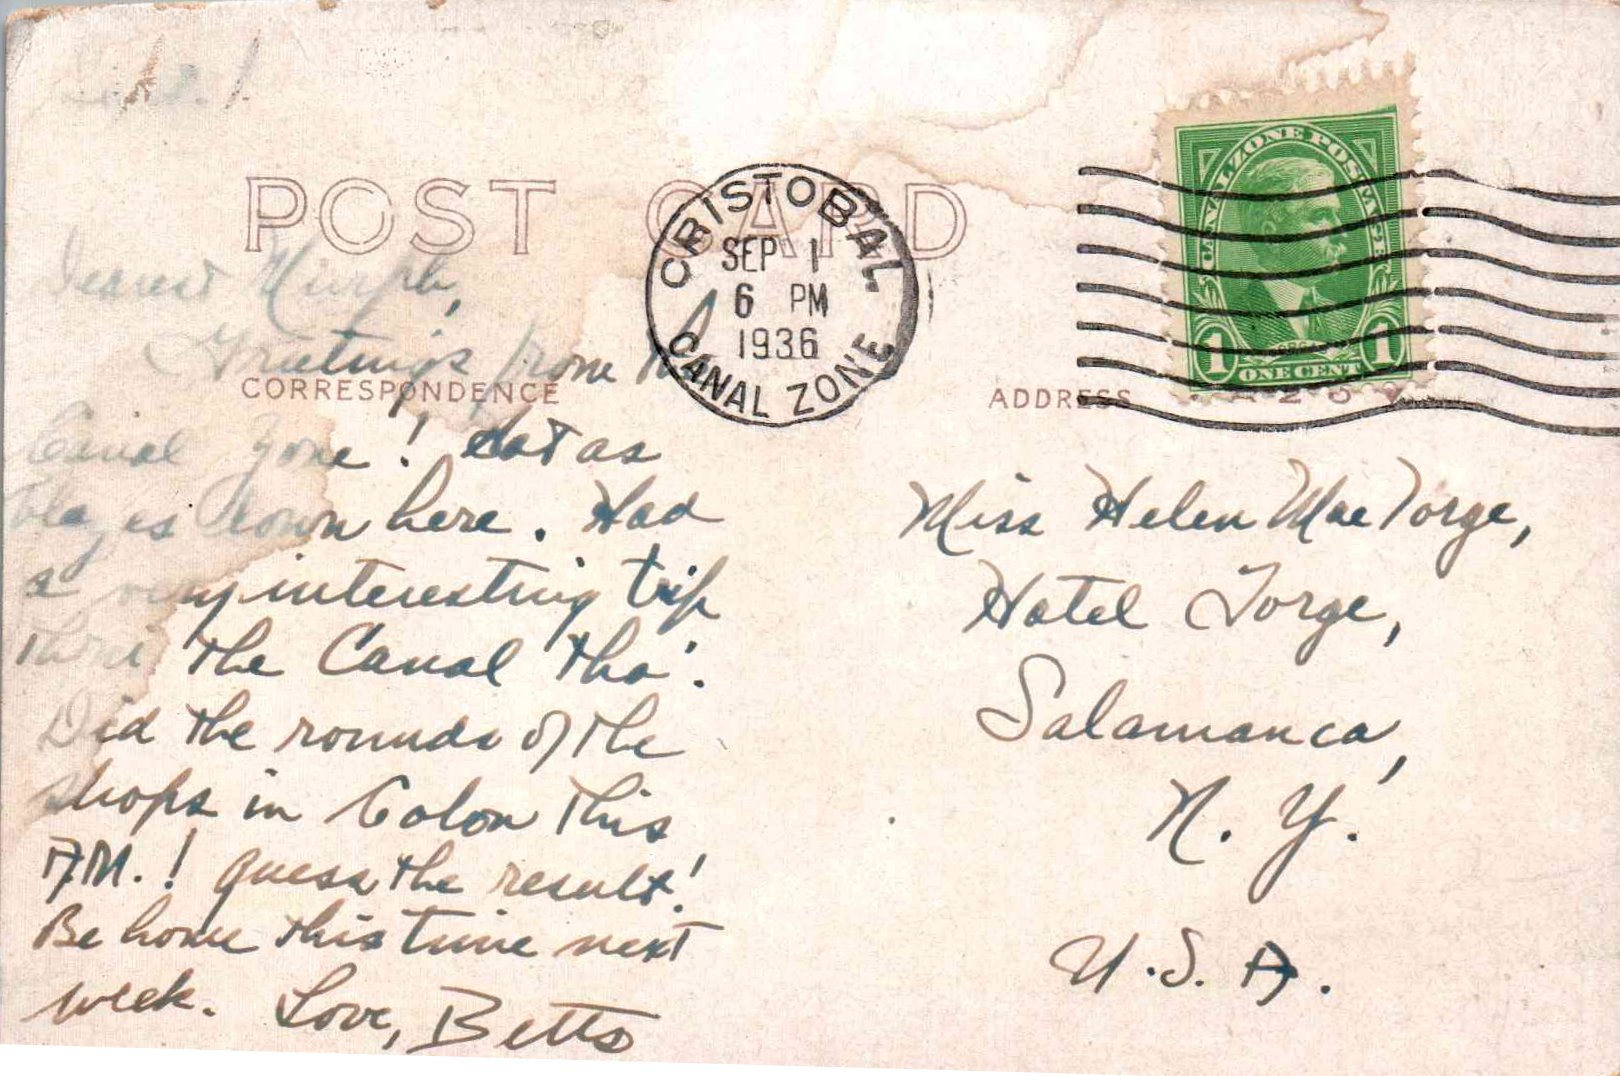 Sept. 1.
POST CARD
CRISTOBAL
SEP 1
6 PM
1936
CANAL ZONE
CANAL ZONE POSTAGE
1 ONE CENT 1
CORRESPONDENCE
ADDRESS
Dearest Murph,
Greetings from
Canal Zone! Hot as
blazes down here. Had
a very interesting trip
thru the Canal tho'.
Did the rounds of the
shops in Colon this
AM.! Guess the result!
Be home this time next
week. Love, Betts
Miss Helen Mae Torge,
Hotel Torge,
Salamanca,
N. Y.
U. S. A.